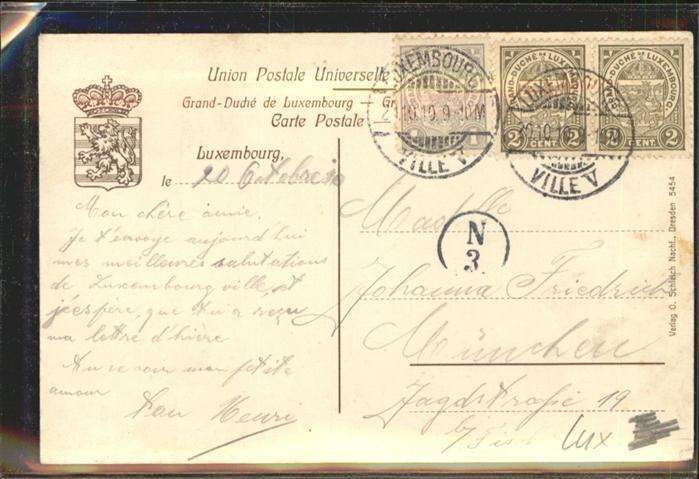 Union Postale Universelle
Grand-Duché de Luxembourg
Carte Postale
Luxembourg,
le 20 Octobre 10
Mon chère amie,
Je t'envoye aujourd'hui
mes meilleures salutations
de Luxembourg ville, et
j'éspère, que tu a reçu
ma lettre d'hière
Au revoir mon petite
amour
Ton Henri
LUXEMBOURG
20.10.10.9-10M
VILLE V
1
GRAND-DUCHÉ DE LUXEMBOURG
2 CENT. 2
GRAND-DUCHÉ DE LUXEMBOURG
2 CENT. 2
LUXEMBOURG
VILLE V
N
3
Johanna Friedrich
München
Jagdstraße 19
Lux
Verlag O. Schleich Nachf., Dresden 5454